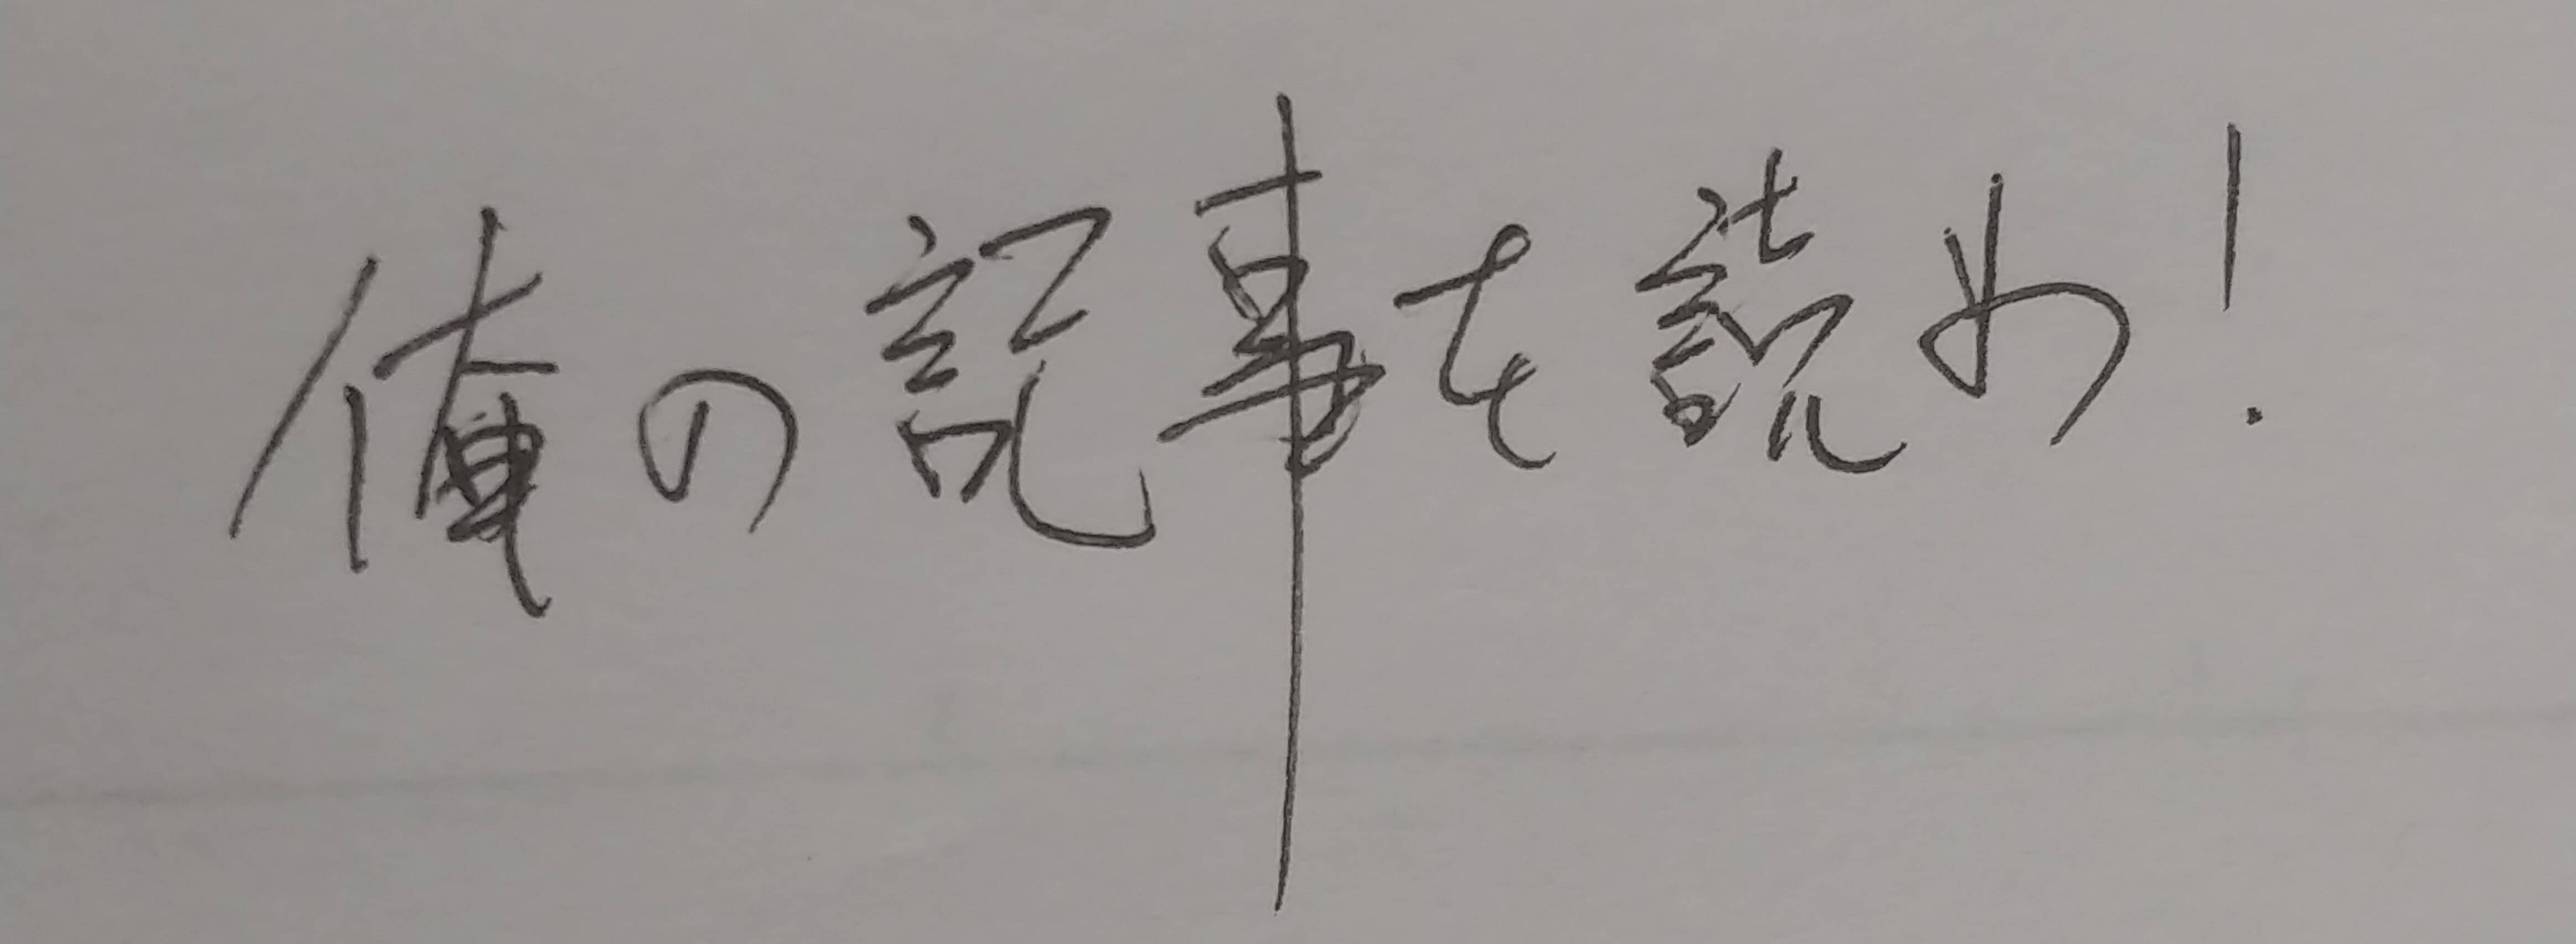 俺の記事を読め!